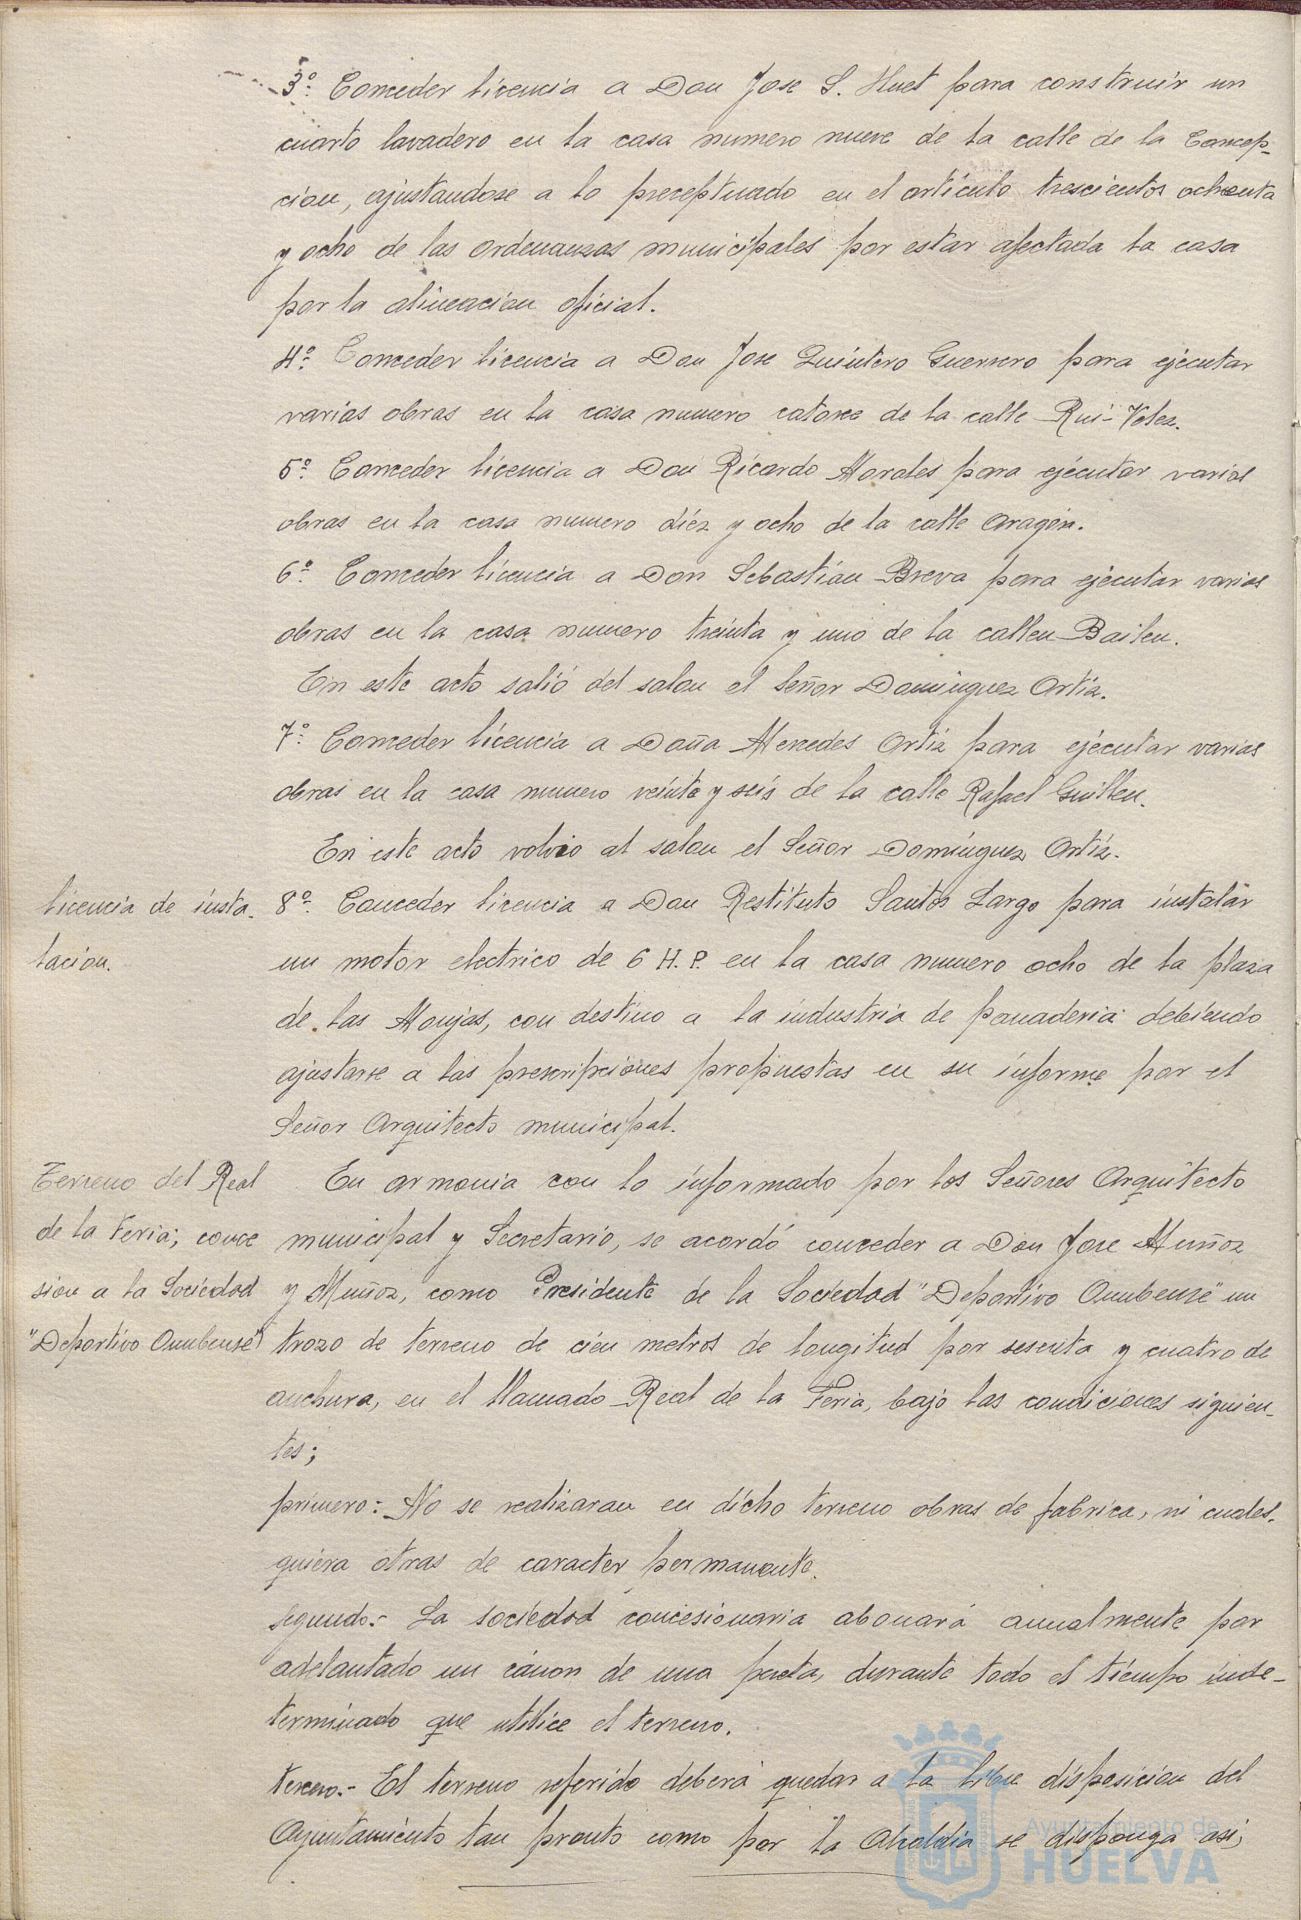 3º Conceder licencia a Don Jose S. Huet para construir un
cuarto lavadero en la casa numero nueve de la calle de la Concep-
cion, ajustandose a lo preceptuado en el artículo trescientos ochenta
y ocho de las ordenanzas municipales por estar afectada la casa
por la alineacion oficial.
4º Conceder licencia a Don Jose Quintero Guerrero para ejecutar
varias obras en la casa numero catorce de la calle Rui-Velez.
5º Conceder licencia a Don Ricardo Morales para ejecutar varias
obras en la casa numero diez y ocho de la calle Aragón.
6º Conceder licencia a Don Sebastian Breva para ejecutar varias
obras en la casa numero treinta y uno de la callen Bailen.
En este acto salió del salon el Señor Dominguez Ortiz.
7º Conceder licencia a Doña Mercedes Ortiz para ejecutar varias
obras en la casa numero veinte y seis de la calle Rafael Guillen.
En este acto volvio al salon el Señor Dominguez Ortiz.
licencia de insta-
lacion.
8º Conceder licencia a Don Restituto Santos Largo para instalar
un motor electrico de 6 H.P. en la casa numero ocho de la plaza
de las Monjas, con destino a la industria de panaderia debiendo
ajustarse a las prescripciones propuestas en su informe por el
Señor Arquitecto municipal.
Terreno del Real
de la Feria; conce
sion a la Sociedad
"Deportivo Onubense"
En armonia con lo informado por los Señores Arquitecto
municipal y Secretario, se acordó conceder a Don Jose Muñoz
y Muñoz, como Presidente de la Sociedad "Deportivo Onubense" un
trozo de terreno de cien metros de longitud por sesenta y cuatro de
anchura, en el llamado Real de la Feria, bajo las condiciones siguien-
tes;
primero:- No se realizaran en dicho terreno obras de fabrica, ni cuales-
quiera otras de caracter permanente.
segundo:- La sociedad concesionaria abonará anualmente por
adelantado un cánon de una peseta, durante todo el tiempo inde-
terminado que utilice el terreno.
tercero.- El terreno referido deberá quedar a la libre disposicion del
Ayuntamiento tan pronto como por la Alcaldia se disponga asi;
Ayuntamiento de
HUELVA